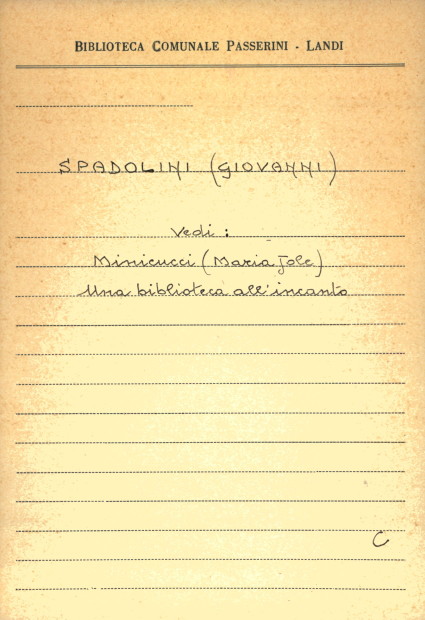 BIBLIOTECA COMUNALE PASSERINI - LANDI
SPADOLINI (GIOVANNI)
Vedi :
Minicucci (Maria Jole)
Una biblioteca all'incanto
C